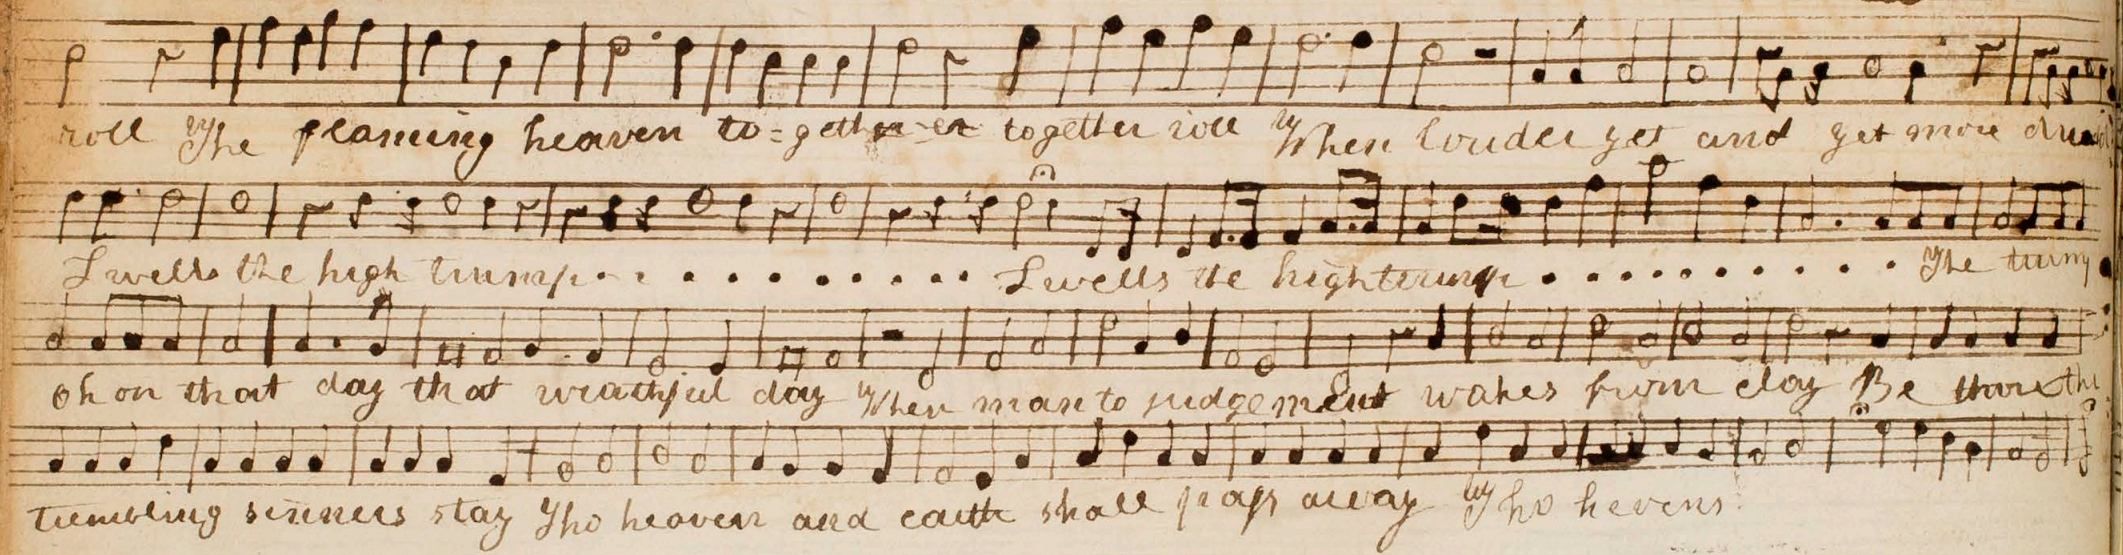 roll The flaming heaven to=gether er together roll When louder yet and yet more dread
Swells the high trump . . . . . . . . . . Swells the high trump . . . . . . . . . . The trump
oh on that day that wrathful day When man to judgement wakes from clay Be thou the
trembling sinners stay Tho heaven and earth shall pass away Tho hevens